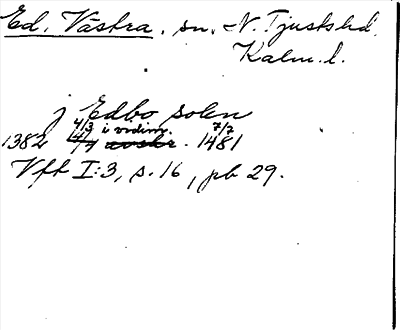 Ed, Västra, sn. N. Tjusts hd.
Kalm. l.
j Edbo solen
1382 4/3 i vidim. 7/7 1481
Vft I:3, s. 16, pb 29.